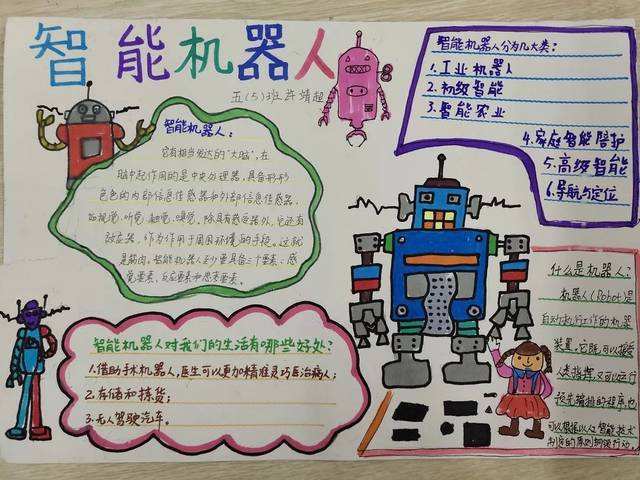 智能机器人
五(5)班许靖超
智能机器人：
它有相当发达的“大脑”，在
脑中起作用的是中央处理器，具备形形
色色的内部信息传感器和外部信息传感器，
如视觉、听觉、触觉、嗅觉。除具有感受器外，它还有
效应器，作为作用于周围环境的手段。这就
是筋肉，智能机器人至少要具备三个要素：感
觉要素，反应要素和思考要素。
智能机器人分为几大类：
1.工业机器人
2.初级智能
3.智能农业
4.家庭智能陪护
5.高级智能
6.导航与定位
智能机器人对我们的生活有哪些好处？
1.借助手术机器人，医生可以更加精准灵巧医治病人；
2.存储和拣货；
3.无人驾驶汽车。
什么是机器人？
机器人(Robot)是
自动执行工作的机器
装置。它既可以接受
人类指挥，又可以运行
预先编排的程序，也
可以根据以人工智能技术
制定的原则纲领行动。